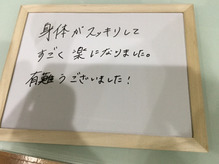 身体がスッキリして
すごく楽になりました。
有難うございました!